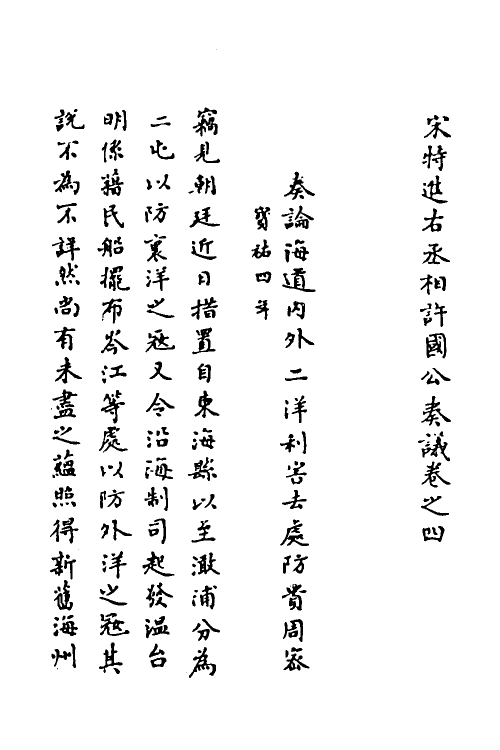 宋特進右丞相許國公奏議卷之四
奏論海道内外二洋利害去處防貴周宻
寳祐四年
竊見朝廷近日措置自東海縣以至澉浦分為
二屯以防裏洋之冦又令沿海制司起發温台
明係籍民船擺布岑江等處以防外洋之冦其
説不為不詳然尚有未盡之藴照得新舊海州